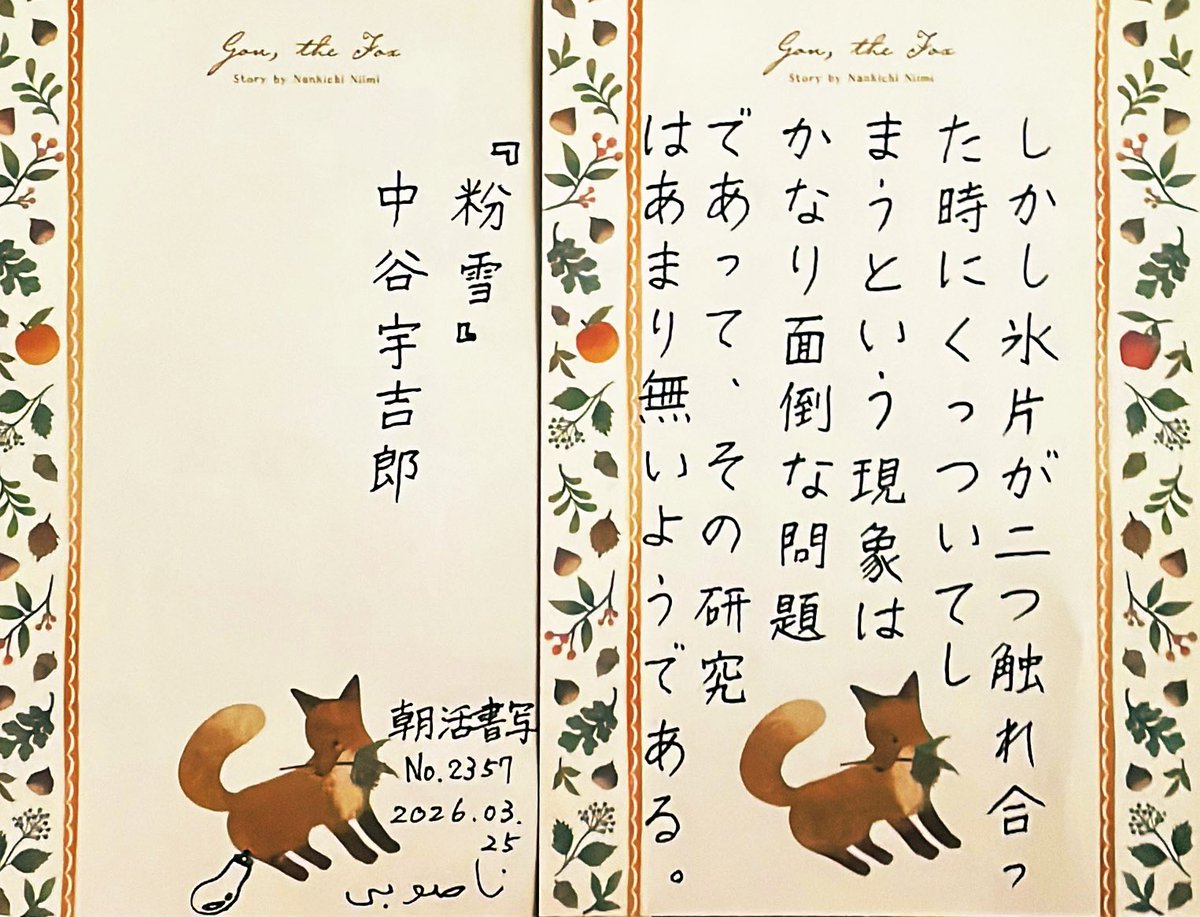 Gon, the Fox
Story by Nankichi Niimi
しかし氷片が二つ触れ合っ
た時にくっついてし
まうという現象は
かなり面倒な問題
であって、その研究
はあまり無いようである。
Gon, the Fox
Story by Nankichi Niimi
『粉雪』
中谷宇吉郎
朝活書写
No.2357
2026.03.
25